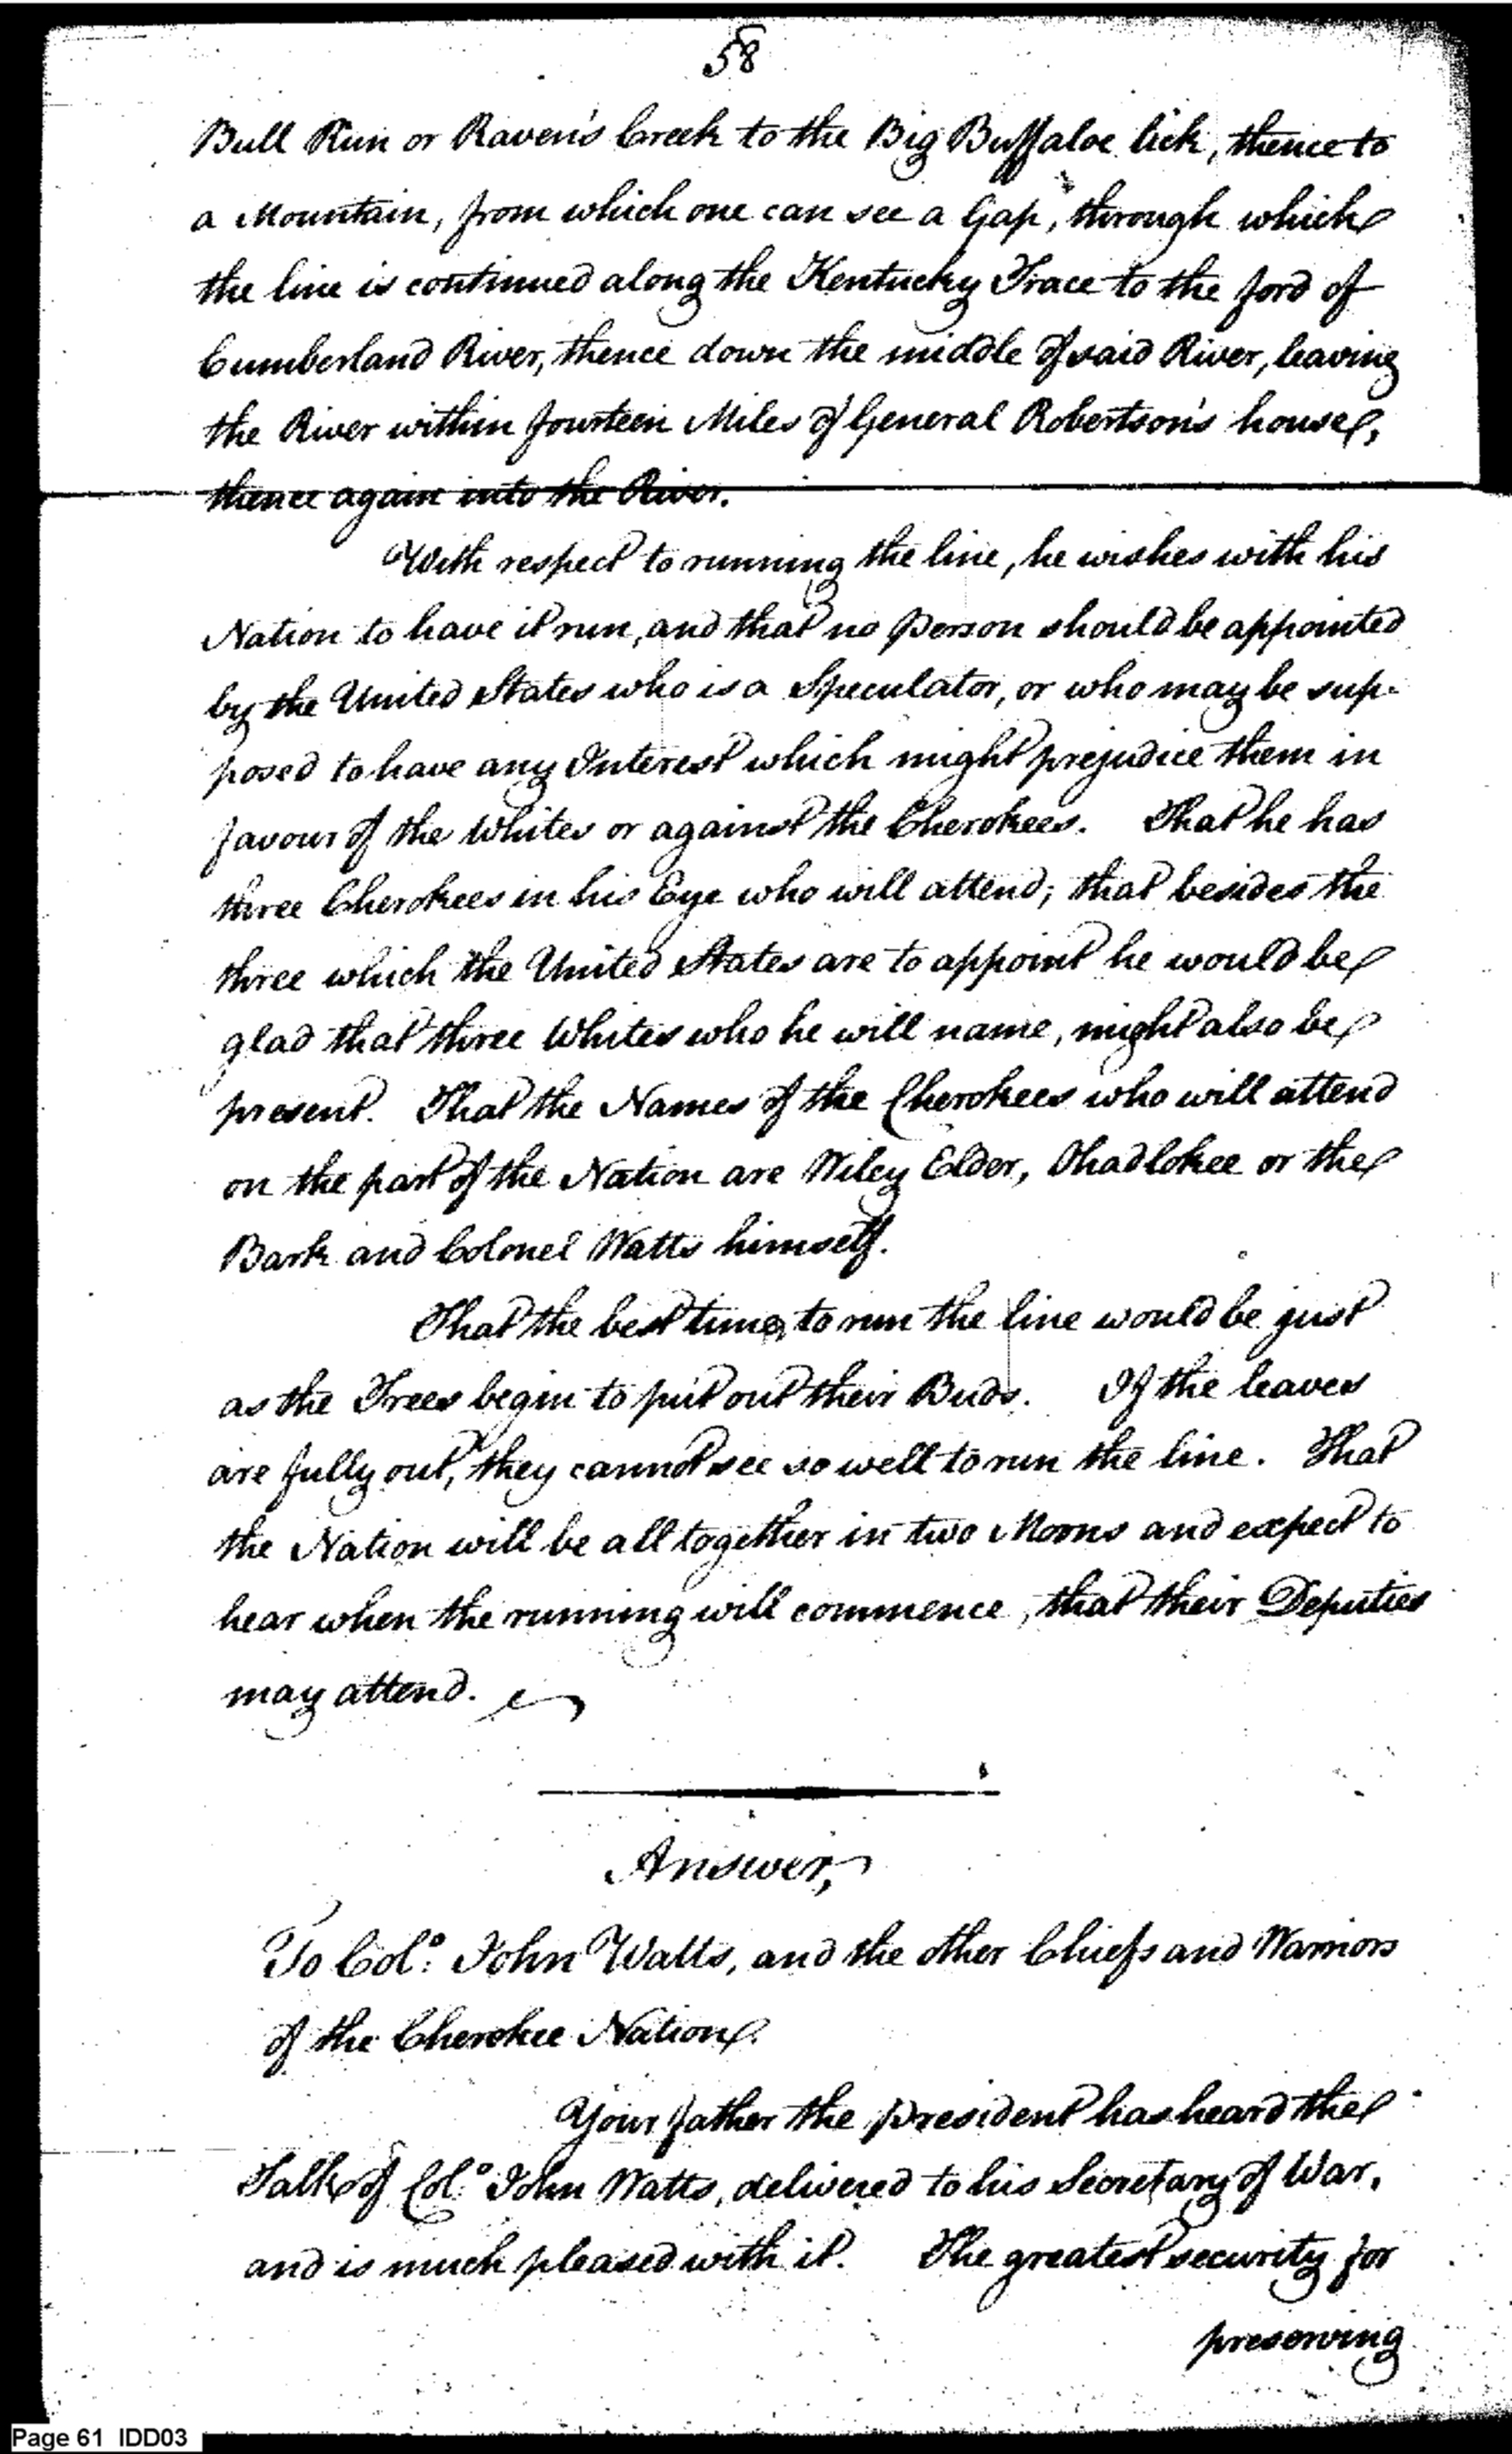 58
Bull Run or Raven's Creek to the Big Buffaloe lick, thence to
a Mountain, from which one can see a Gap, through which
the line is continued along the Kentucky Trace to the ford of
Cumberland River, thence down the middle of said River, leaving
the River within fourteen Miles of General Robertson's house,
thence again into the River.
With respect to running the line, he wishes with his
Nation to have it run, and that no person should be appointed
by the United States who is a Speculator, or who may be sup-
posed to have any Interest which might prejudice them in
favour of the Whites or against the Cherokees. That he has
three Cherokees in his Eye who will attend; that besides the
three which the United States are to appoint he would be
glad that three Whites who he will name, might also be
present. That the Names of the Cherokees who will attend
on the part of the Nation are Wiley Elder, Ohadlokee or the
Bark and Colonel Watts himself.
That the best time, to run the line would be just
as the Trees begin to put out their Buds. If the leaves
are fully out, they cannot see so well to run the line. That
the Nation will be all together in two Moons and expect to
hear when the running will commence, that their Deputies
may attend.
Answer,
To Colo: John Watts, and the other Chiefs and Warriors
of the Cherokee Nation.
Your father the President has heard the
Talk of Colo: John Watts, delivered to his Secretary of War,
and is much pleased with it. The greatest security for
preserving
Page 61 IDD03